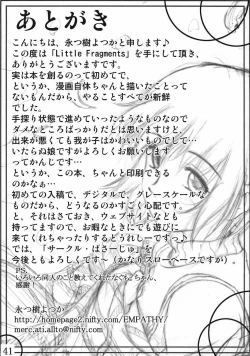 あとがき
こんにちは、永つ樹よつかと申します♪
この度は「Little Fragments」を手にして頂き、
ありがとうございますです。
実は本を創るのって初めてで、
というか、漫画自体ちゃんと描いたことって
ないもんだから、やることすべてが新鮮
でした。
手探り状態で進めていったようなものなので
ダメなところばっかりだとは思いますけど、
出来が悪くても我が子はかわいいものでして…
いたらぬ娘ですがよろしくお願いします
ってかんじです…
というか、この本、ちゃんと印刷できる
のかなぁ…
初めての入稿で、デジタルで、グレースケールな
ものだから、どうなるのかすごく心配です。
と、それはさておき、ウェブサイトなども
持ってますので、お暇なときにでも遊びに
来てくれちゃったりするとうれしーですっ♪
では、「サークル・ぱるーじゅ」を
今後ともよろしくです～(かなりスローペースですが)。
PS.
いろいろ同人のこと教えてくれたなぐもちゃん、
感謝!
永つ樹よつか
http://homepage2.nifty.com/EMPATHY/
merc.ati.allto@nifty.com
41